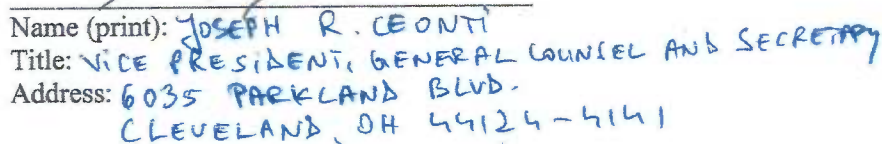 Name (print): JOSEPH R. LEONTI
Title: VICE PRESIDENT, GENERAL COUNSEL AND SECRETARY
Address: 6035 PARKLAND BLVD.
CLEVELAND, OH 44124-4141